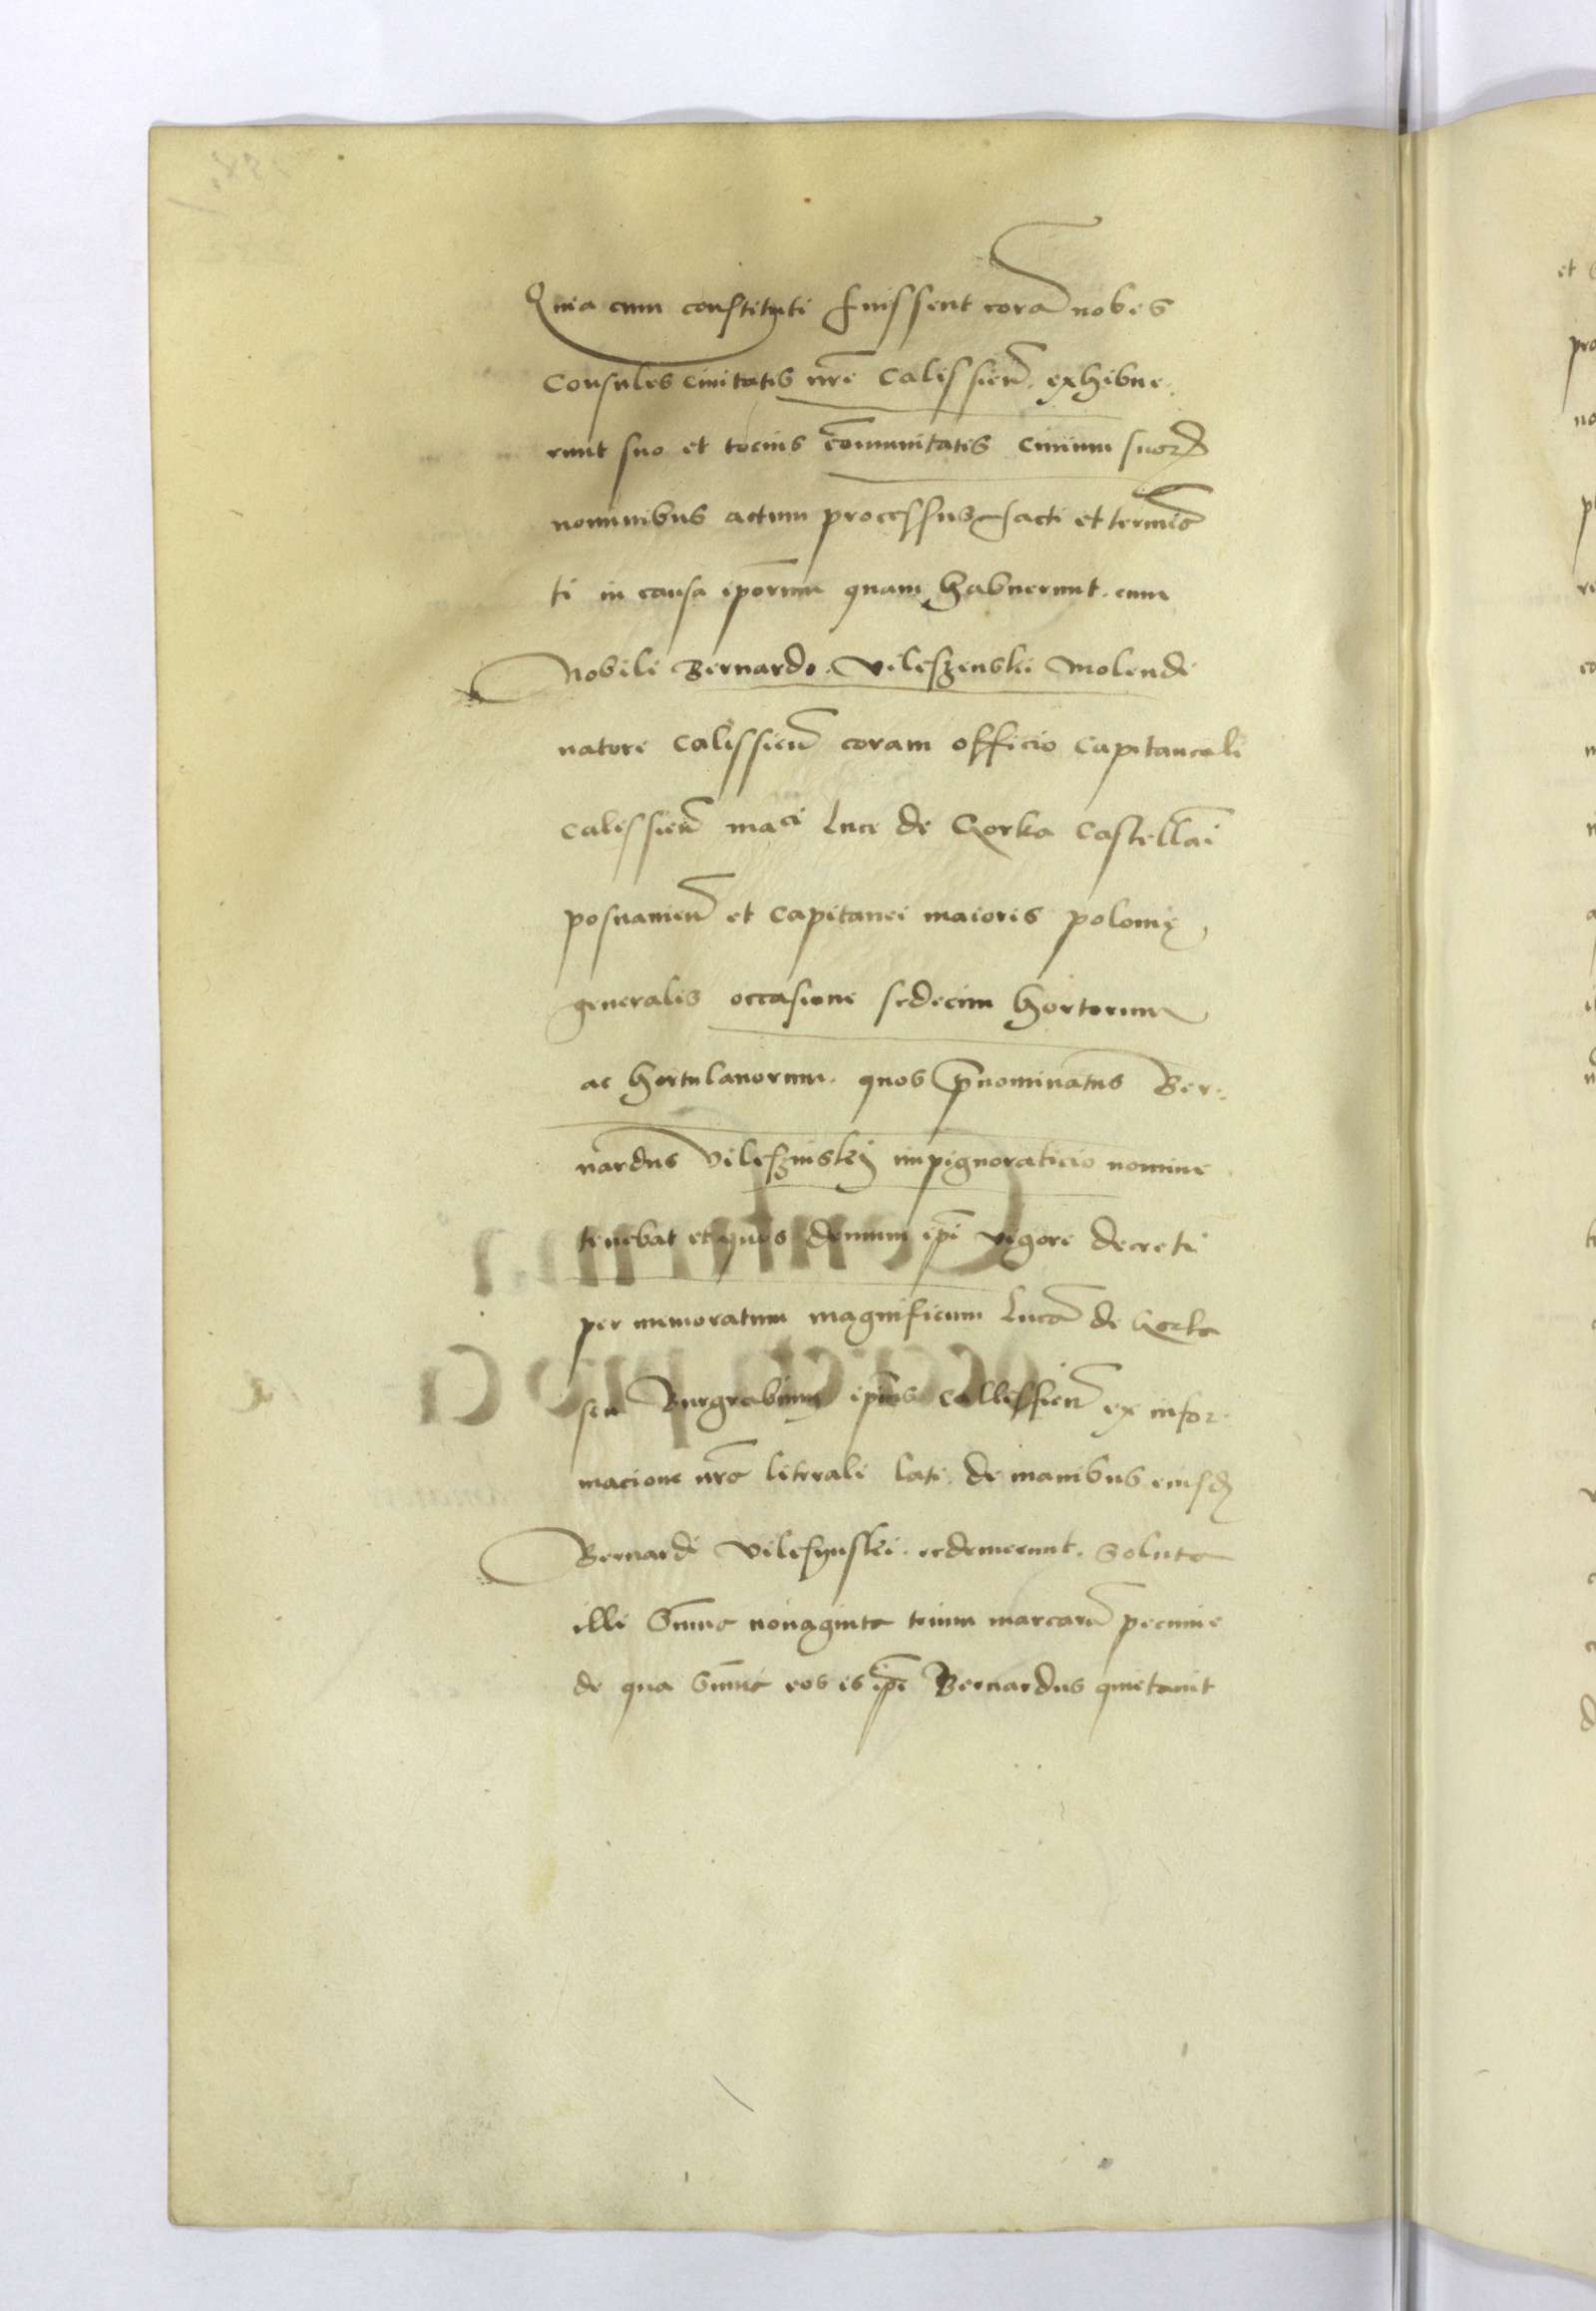 Quia cum constituti fuissent corã nobis
Consules Ciuitatis nr̃e Calissień. exhibue.
runt suo et tocius cõmunitatis Ciuium suorꝫ
nominibus actum processus facti et termiã
ti in causa ip̃orum quam habuerunt. cum
Nobili Bernardo. Vileszenski Molendi
natore Calissień coram officio Capitaneali
Calissień maci Luce de Gorka Castellãi
posnanień et Capitanei maioris polonię
generalis occasione sedecim hortorum
ac hortulanorum. quos p̃nominatus Ber.
nardus Vileszinskij impignoraticio nomine
tenebat et quos demum ip̃i vigore decreti
per memoratum magnificum Lucã de Gorka
seu Burgrabium ip̃ius Callissień ex infor.
macione nr̃a literali lati. de manibus eiusdꝫ
Bernardi Vilesynski. redemerunt. Soluta
illi Sũma nonaginta trium marcarũ pecunie
de qua Sũma eos is ip̃e Bernardus quietauit